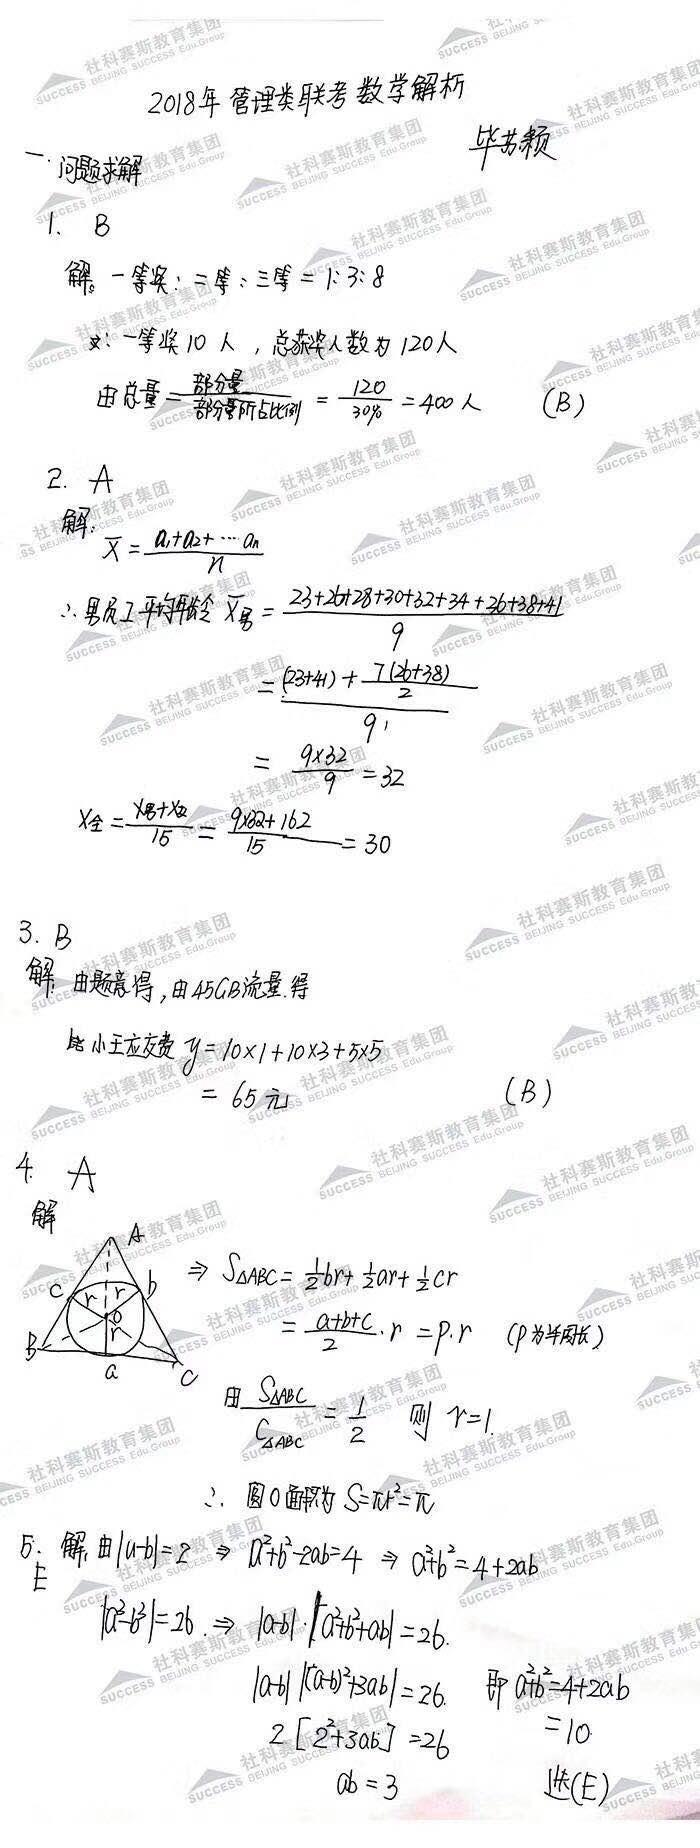 2018年管理类联考数学解析
毕苏颖
一. 问题求解
1. B
解. 一等奖: 二等: 三等 = 1:3:8
又: 一等奖10人, 总获奖人数为120人
由总量 = 部分量/部分量所占比例 = 120/30% = 400人 (B)
2. A
解:
x̄ = (a₁+a₂+…aₙ)/n
∴ 男员工平均年龄 x̄男 = (23+26+28+30+32+34+36+38+41)/9
= ((23+41)+7(26+38)/2)/9
= 9×32/9 = 32
x全 = (x男+x女)/15 = (9×32+162)/15 = 30
3. B
解 由题意得, 由45GB流量.得
小王应交费 y=10×1+10×3+5×5
= 65元 (B)
4. A
解
A
c r r b
o
r
B a C
⇒ S△ABC = ½br+½ar+½cr
= (a+b+c)/2·r = p.r (p为半周长)
由 S△ABC/C△ABC = 1/2 则 r=1.
∴ 圆O面积为 S=πr²=π
5. 解. 由|a-b|=2 ⇒ a²+b²-2ab=4 ⇒ a²+b²=4+2ab
E
|a³-b³|=26. ⇒ |a-b|·|a²+b²+ab|=26.
|a-b| |(a-b)²+3ab|=26. 即 a²+b²=4+2ab
2[2²+3ab]=26 =10
ab=3 选(E)
社科赛斯教育集团
SUCCESS BEIJING SUCCESS Edu.Group